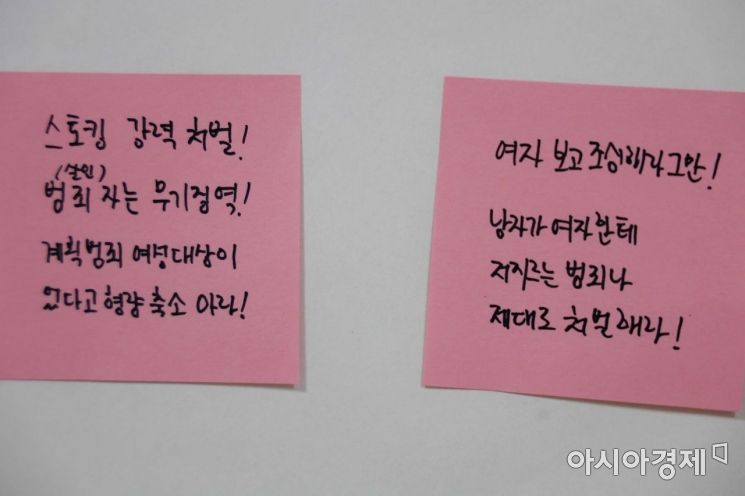 스토킹 강력 처벌!
(살인)
범죄자는 무기징역!
계획범죄 여성대상이
었다고 형량 축소 마라!
여자 보고 조심해라 그만!
남자가 여자한테
저지르는 범죄나
제대로 처벌해라!
아시아경제